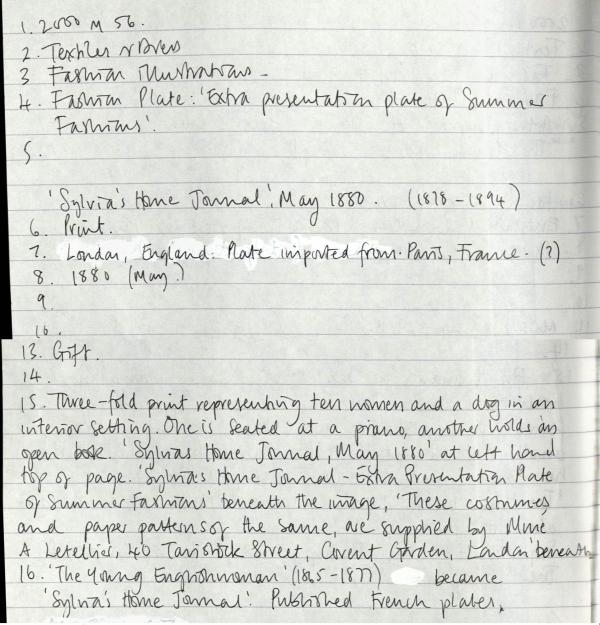 1. 2000 M 56.
2. Textiles & Dress
3 Fashion Illustrations -
4. Fashion Plate: 'Extra presentation plate of Summer
Fashions'.
5.
'Sylvia's Home Journal', May 1880. (1878-1894)
6. Print.
7. London, England. Plate imported from Paris, France. (?)
8. 1880 (May.)
9.
10.
13. Gift.
14.
15. Three-fold print representing ten women and a dog in an
interior setting. One is seated at a piano, another holds an
open book. 'Sylvia's Home Journal, May 1880' at left hand
top of page. 'Sylvia's Home Journal - Extra Presentation Plate
of Summer Fashions' beneath the image, 'These costumes
and paper patterns of the same, are supplied by Mme
A Letellier, 40 Tavistock Street, Covent Garden, London' beneath
16. 'The Young Englishwoman' (1865-1877) became
'Sylvia's Home Journal'. Published French plates.